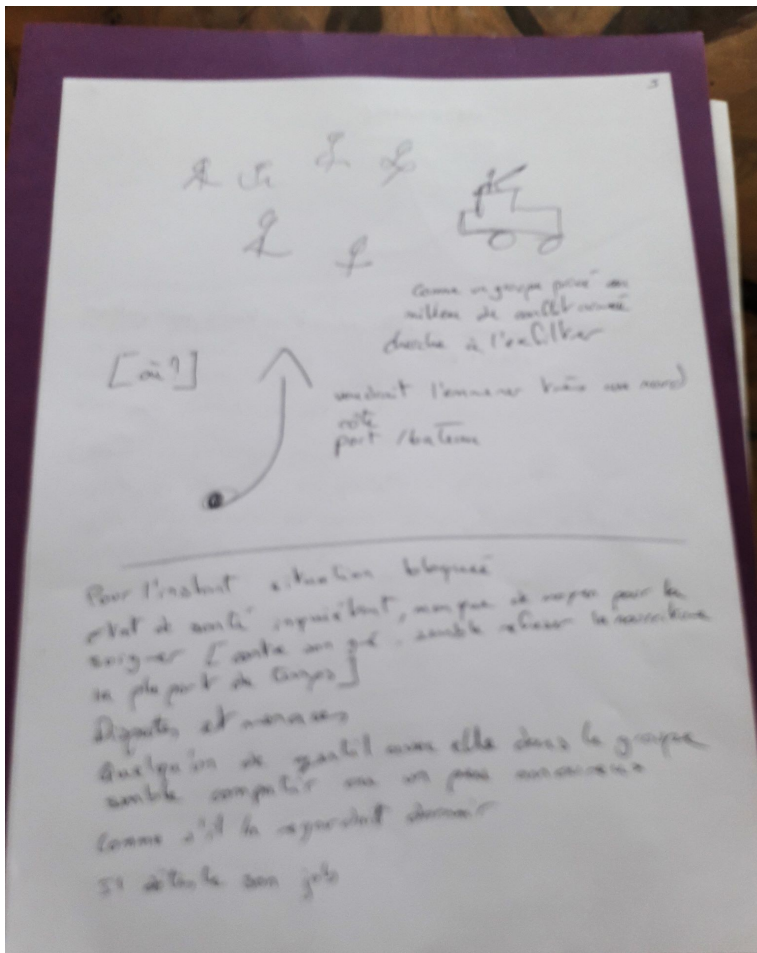 5
comme un groupe privé en
milieu de conflit armé
cherche à l'exfiltrer
[où?]
voudrait l'emmener vers un nord
côté
port / bateau
Pour l'instant situation bloquée
état de santé inquiétant, manque de moyen pour la
soigner [contre son gré. semble refuser la nourriture
la plupart du temps]
Disputes et menaces
Quelqu'un de gentil avec elle dans le groupe
semble compatir ou un peu
comme s'il la regardait dormir
et déteste son job